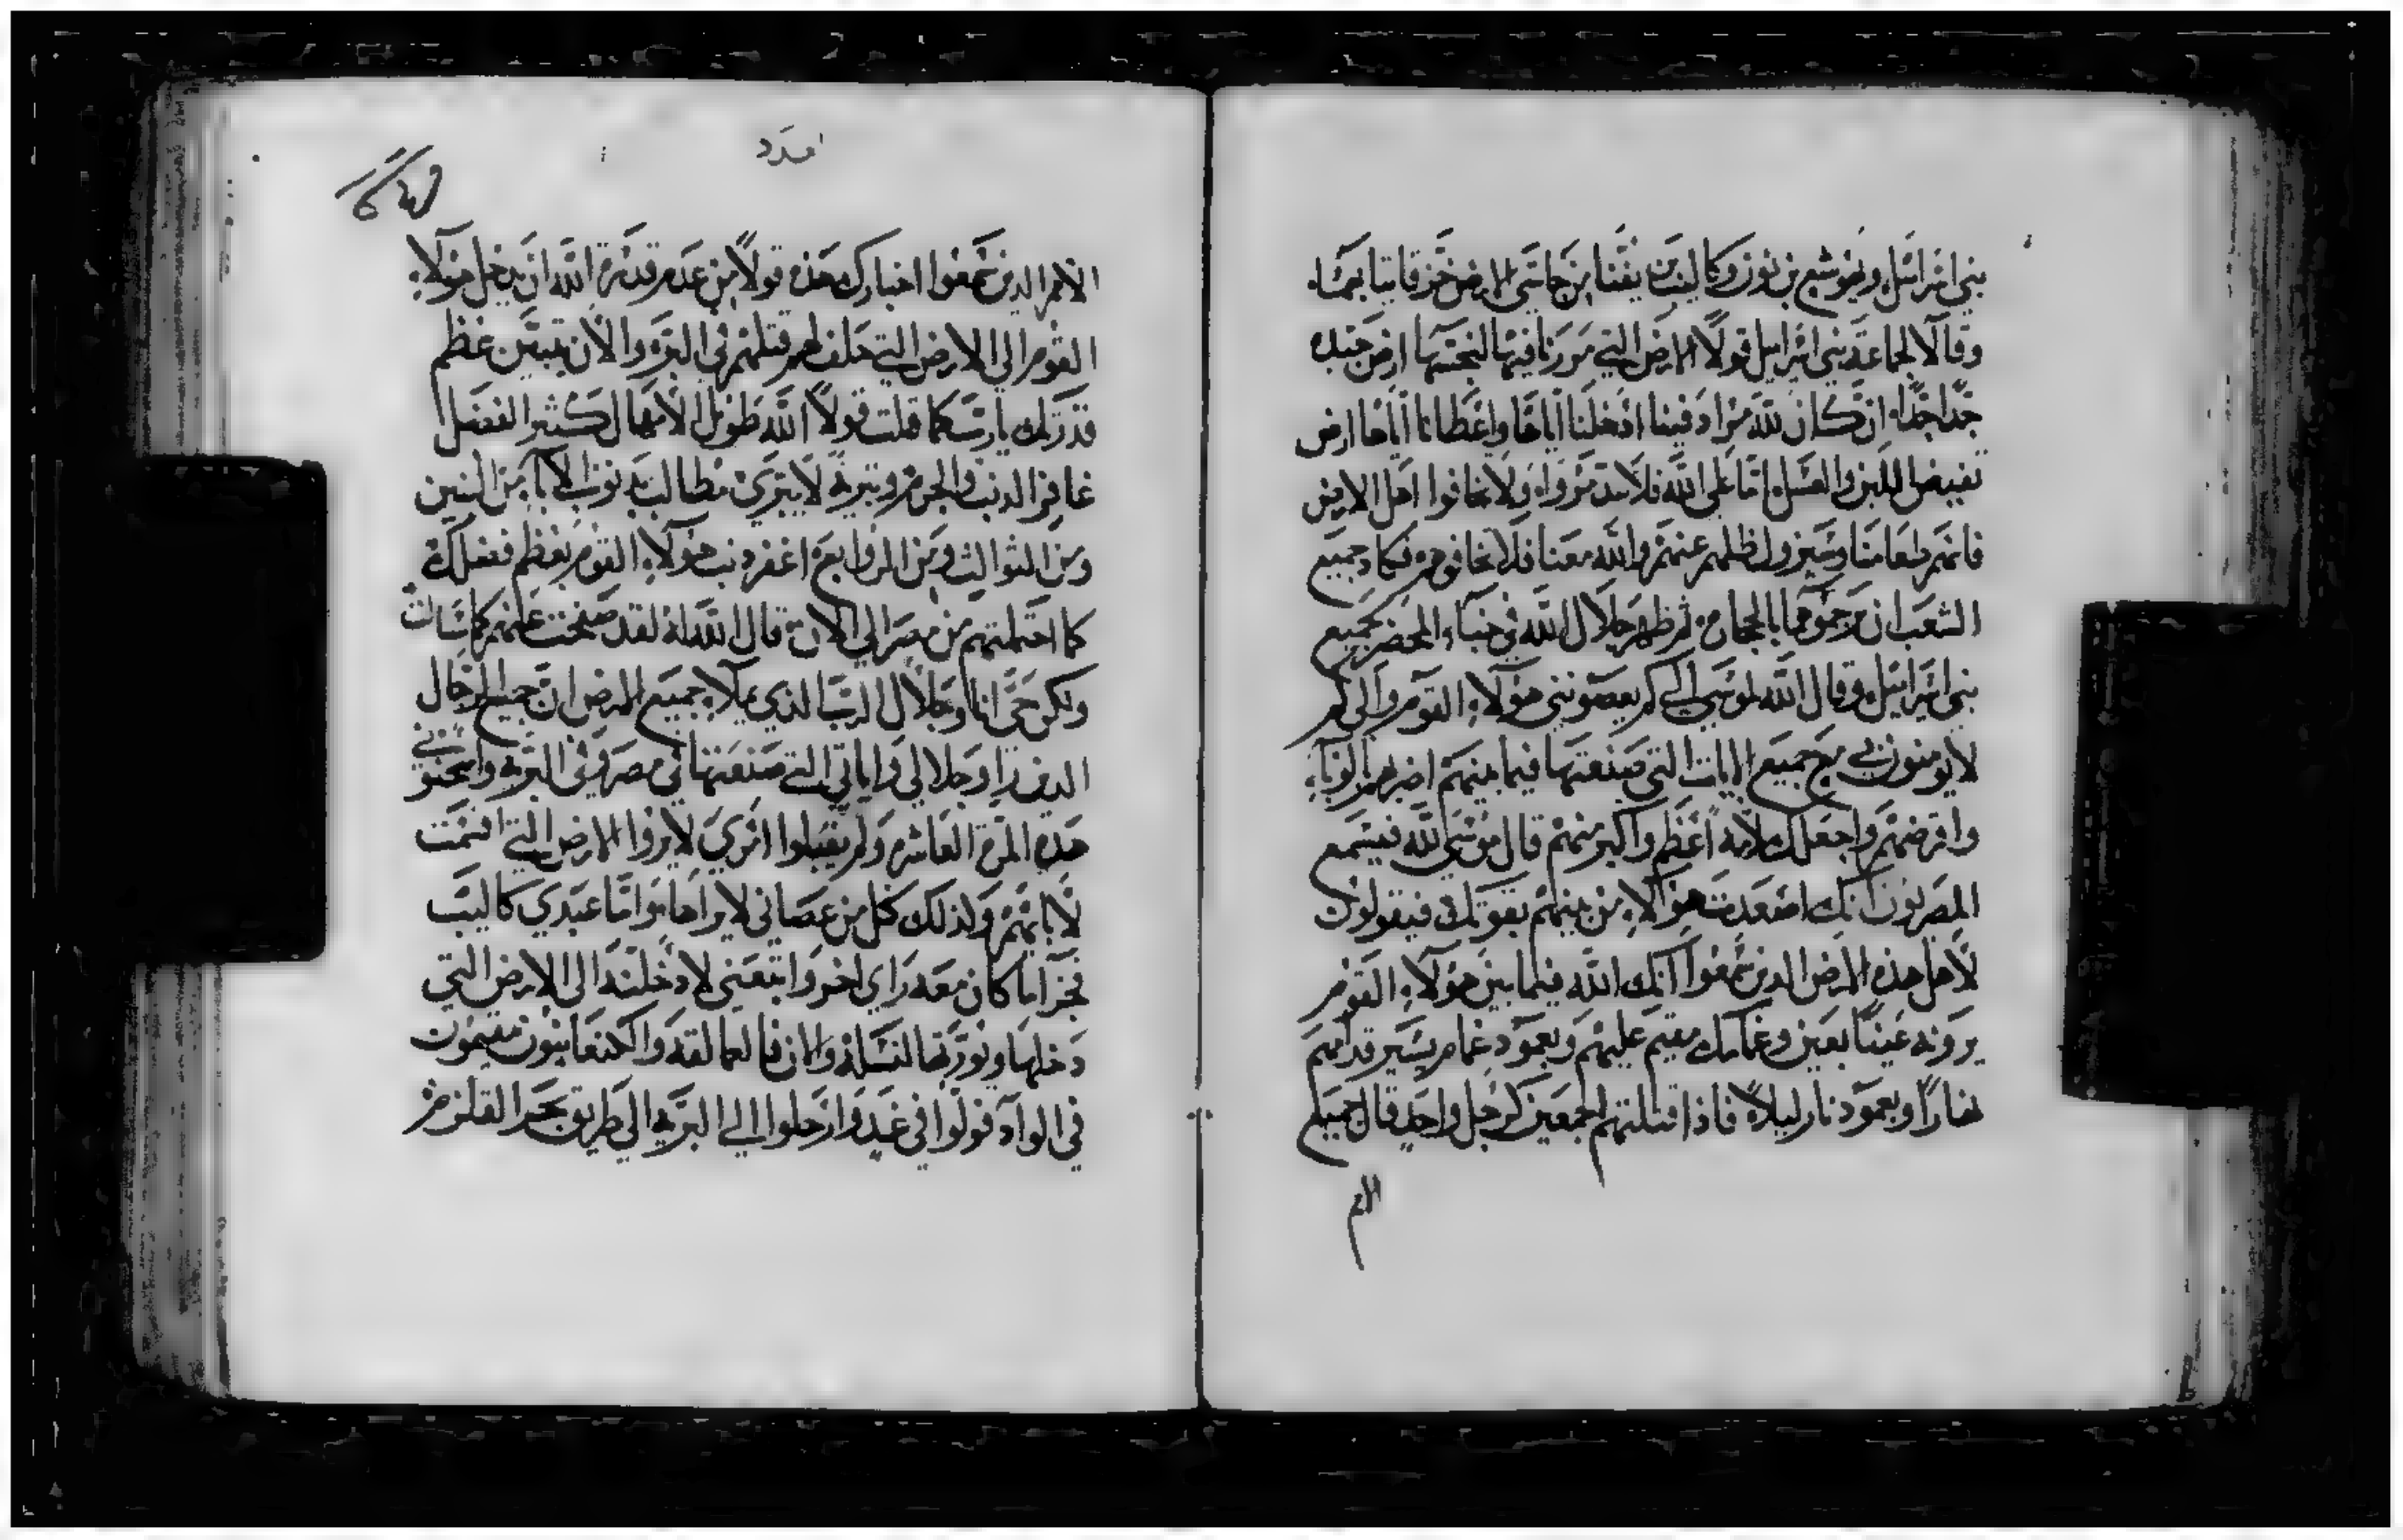 بني اسرائيل ويوشع بن نون وكاليب بن يفنا من جاسّي الارض خرقا ثيابهما
وقالا لجماعة بني اسرائيل قولاً الارض التي مررنا فيها لنجسّها ارض جيده
جدّا جدّا ان كان لله مراد فينا ادخلنا اياها واعطانا اياها ارض
تفيض اللبن والعسل امّا على الله فلا تتمرّدوا ولا تخافوا اهل الارض
فانهم طعامنا وسيزول ظلهم عنهم والله معنا فلا تخافوهم فكاد جميع
الشعب ان يرجموهما بالحجاره ثم ظهر جلال الله في خباء المحضر لجميع
بني اسرائيل وقال الله لموسي الي كم يعصونني هولآءِ القوم والي كم
لا يومنون بي مع جميع الايات التي صنعتها فيما بينهم اضربهم بالوباءِ
واقرضهم واجعلك لامه اعظم واكبر منهم قال موسي لله فيسمع
المصريون انك اصعدت هولاءِ من بينهم بقوتك فيقولون
لاهل هذه الارض الدين سمعوا انك الله فيما بين هولآءِ القوم
يرونه عيناً بعين وغمامك مقيم عليهم وبعمود غمام يسير قدامهم
نهاراً وبعمود نار ليلاً فاذا قتلتهم اجمعين كرجل واحد قال جميع
الامم
امدد
الامم الدين سمعوا اخبارك هذه قولاً من عدم قدرة الله ان يدخل هولآءِ
القوم الي الارض التي حلف لهم قتلهم في البريه والآن يتبيّن عظم
قدرتك يا ربّ كما قلت قولاً الله طويل الامهال كثير الفضل
غافر الدنب والجرم وتبريةً لا يبرّي مطالب بدنوب الآباء من البنين
ومن الثوالث ومن الروابع اغفر دنب هولآءِ القوم بعظم فضلك
كما احتملتهم من مصر الي الان قال الله له لقد صفحت عنهم كما سالت
ولكن حيّ انا وجلال الربّ الذي يملاء جميع الارض ان جميع الرجال
الدين راو جلالي واياتي التي صنعتها في مصر وفي البريه وامتحنوني
هذه المرة العاشره ولم يقبلوا امري لا يروا الارض التي اقسمت
لابايهم ولذلك كل من عصاني لا يراها وامّا عبدي كاليب
فجزآ ما كان معه راي اخر واتبعني لادخلنّه الى الارض التي
دخلها ويورّثها لنسله والان فالعمالقه والكنعانيون مقيمون
في الواد فولّوا في غد وارحلوا الي البريه الي طريق بحر القلزم